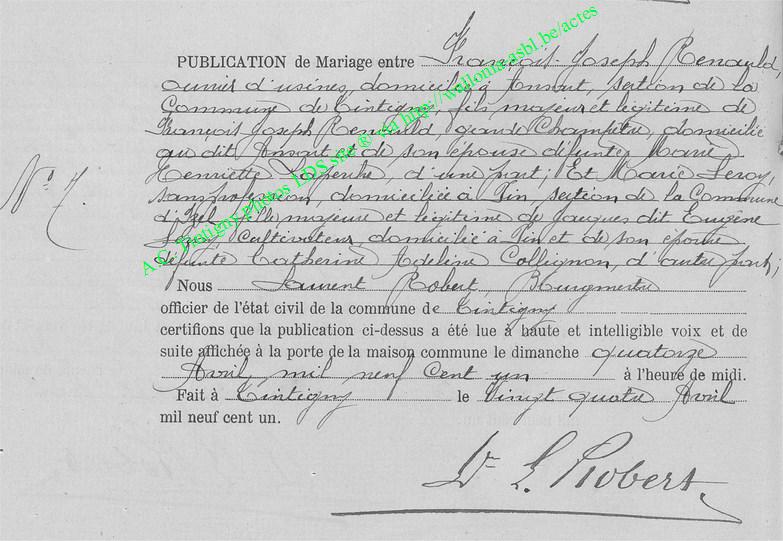 PUBLICATION de Mariage entre François-Joseph Renauld
ouvrier d'usines, domicilié à Ansart, section de la
Commune de Tintigny, fils majeur et légitime de
François Joseph Renauld, garde Champêtre, domicilié
au dit Ansart et de son épouse défunte Marie
Henriette d'une part; Et Marie Leroy,
sans profession, domiciliée à Pin, section de la Commune
d'Izel, fille majeure et légitime de Jacques dit Eugène
Leroy, Cultivateur, domicilié à Pin et de son épouse
défunte Catherine Adeline Collignon, d'autre part;
N° 7.
Nous Laurent Robert, Burgmestre
officier de l'état civil de la commune de Tintigny
certifions que la publication ci-dessus a été lue à haute et intelligible voix et de
suite affichée à la porte de la maison commune le dimanche quatorze
Avril, mil neuf Cent un à l'heure de midi.
Fait à Tintigny le Vingt quatre Avril
mil neuf cent un.
Dr L. Robert.
A.C. Tintigny photos LDS site ® via http://wallonia.asbl.be/actes